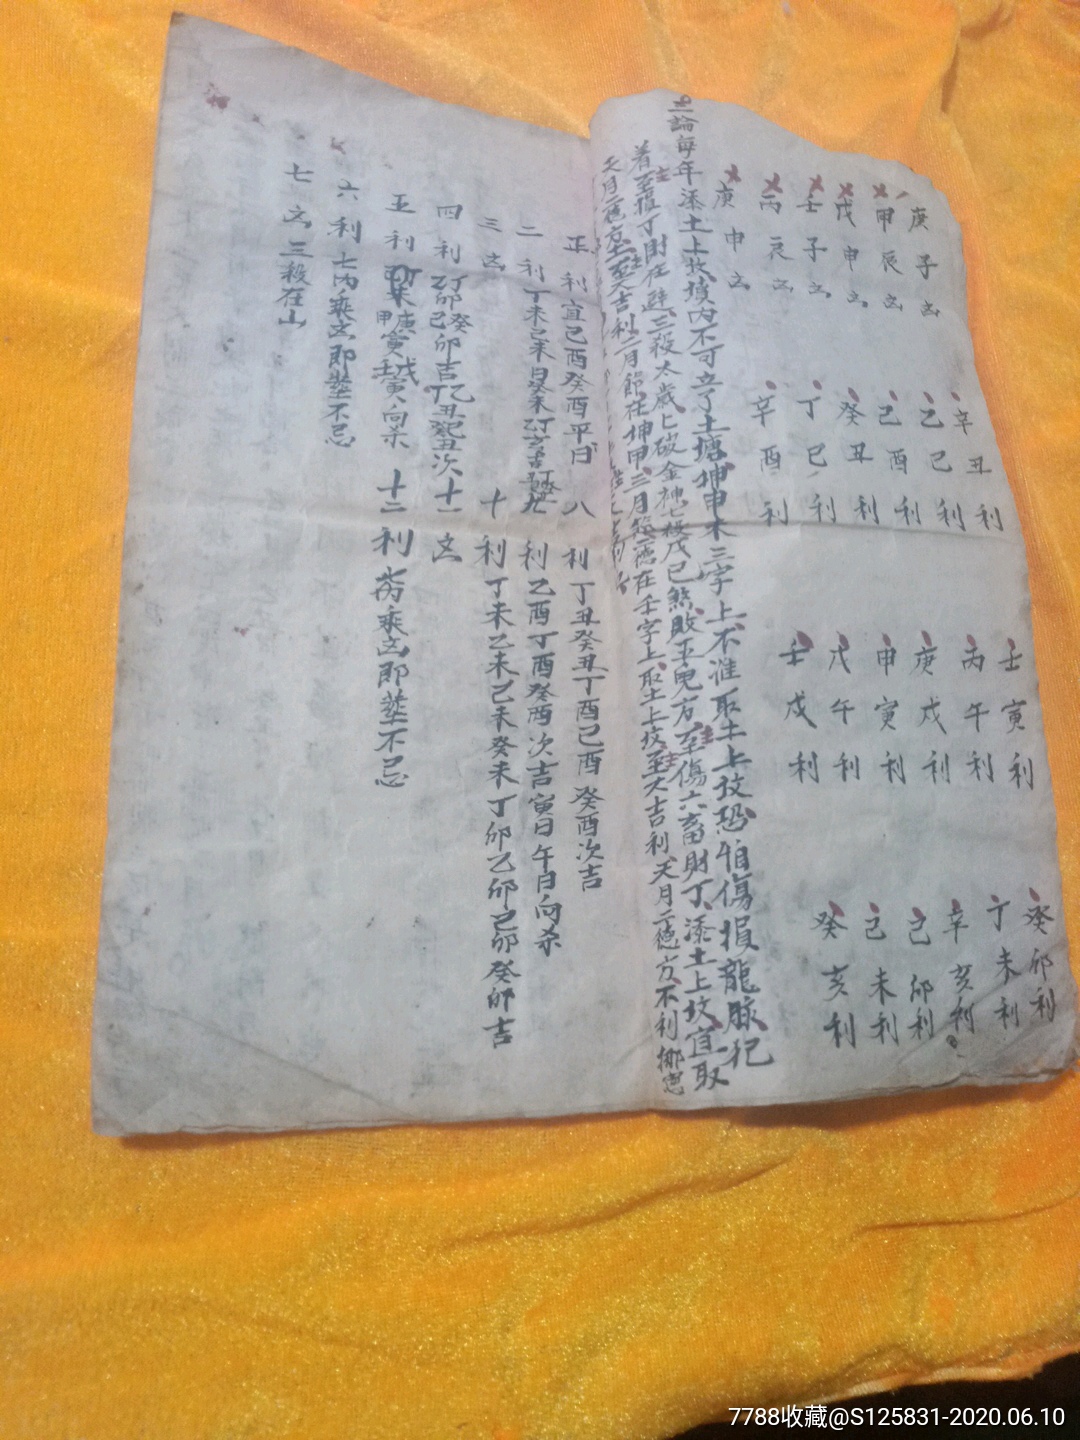 庚子凶 辛丑利 壬寅利 癸卯利
甲辰凶 乙巳利 丙午利 丁未利
戊申凶 己酉利 庚戌利 辛亥利
壬子凶 癸丑利 甲寅利 己卯利
丙辰凶 丁巳利 戊午利 己未利
庚申凶 辛酉利 壬戌利 癸亥利
三論每年添土上坟墳内不可立了土塘坤申未三字上不准取土上坟恐怕傷損龍脉犯
着至損丁財在避三殺太歲七破金神七殺戊己煞敗平兒方至傷六畜財丁添土上坟宜取
天月二德方至大吉利二月節在坤甲三月節德在壬字上取土上坟至大吉利天月二德方不利
正利宜己酉癸酉平日 八利丁丑癸丑丁酉己酉癸酉次吉
二利丁未己未日癸未 九利乙酉丁酉癸酉次吉寅日午日向杀
三凶 十利丁未乙未己未癸未丁卯乙卯己卯癸卯吉
四利丁卯癸卯己卯吉 次 十一凶
五利 向杀 十二利 丙乘凶即塟不忌
六利七内乘凶即塟不忌
七凶三殺在山
7788收藏@S125831-2020.06.10